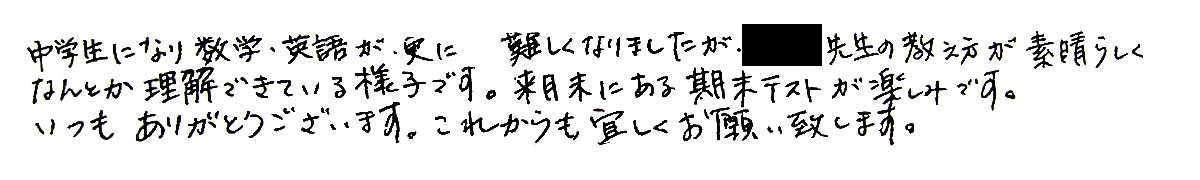 中学生になり数学・英語が、更に 難しくなりましたが、先生の教え方が素晴らしく
なんとか理解できている様子です。来月末にある期末テストが楽しみです。
いつもありがとうございます。これからも宜しくお願い致します。